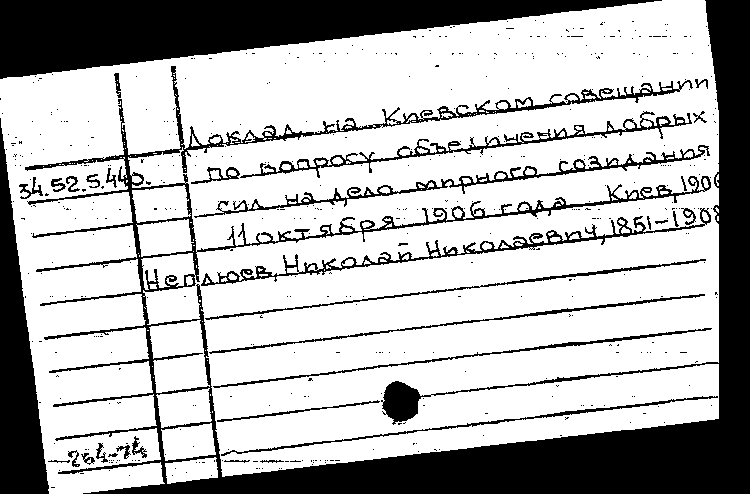 Доклад на Киевском совещании
34.52.5.440. по вопросу объединения добрых
сил на дело мирного созидания
11 октября 1906 года Киев, 1906
Неплюев, Николай Николаевич, 1851-1908
264-74